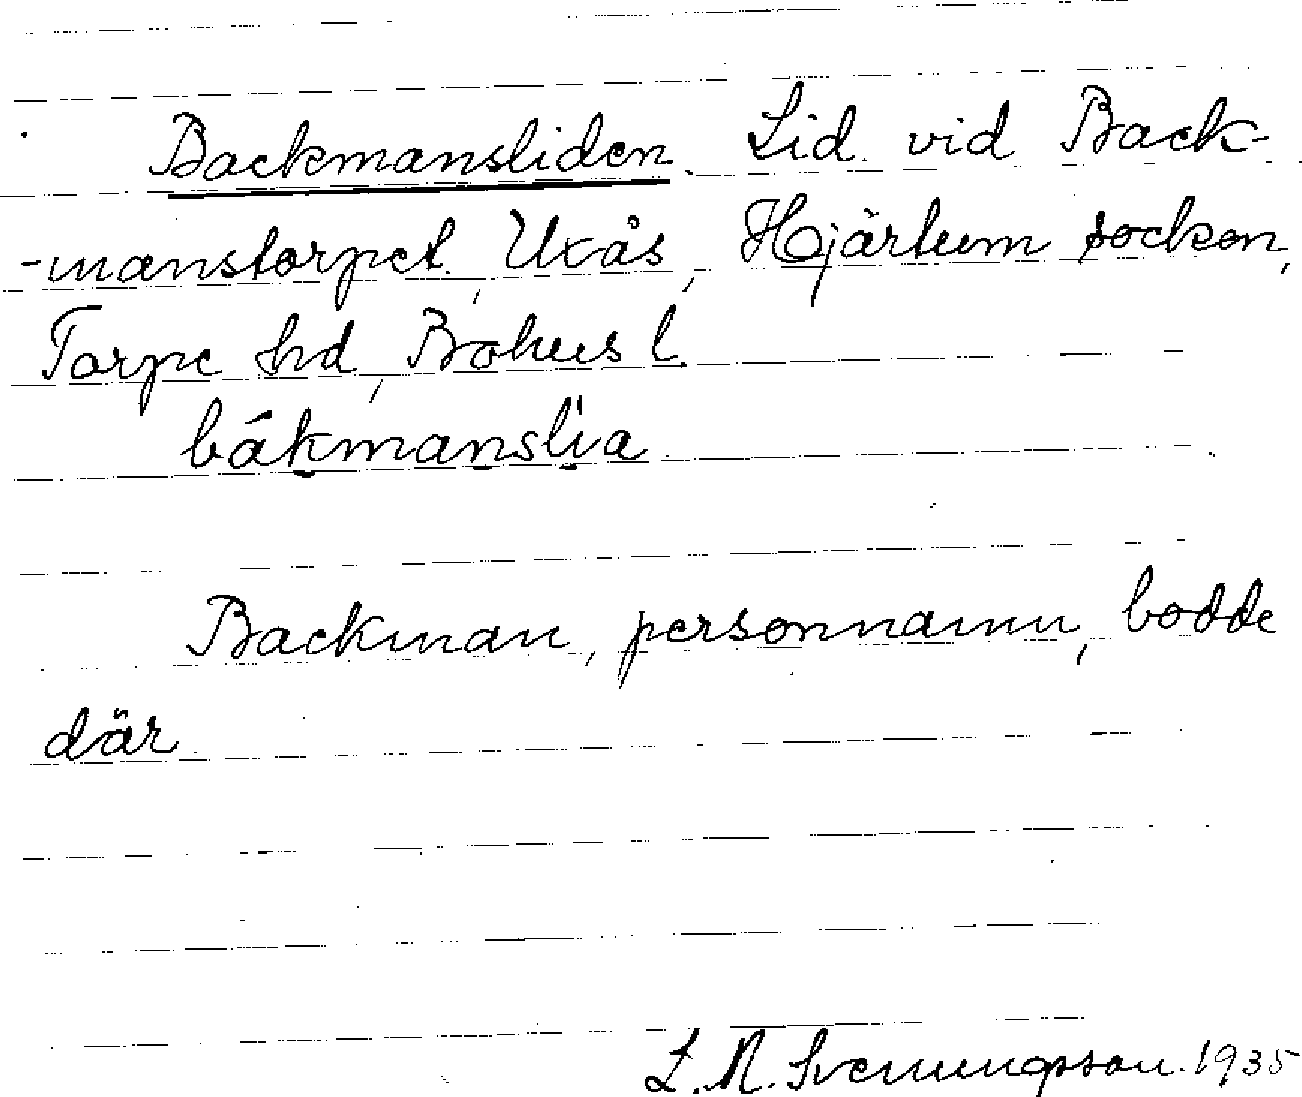 Backmansliden. Lid vid Back-
-manstorpet, Utås, Hjärtum socken,
Torpe hd, Bohus l.
båkmanslia
Backman, personnamn, bodde
där
L. N. Svenungsson. 1935